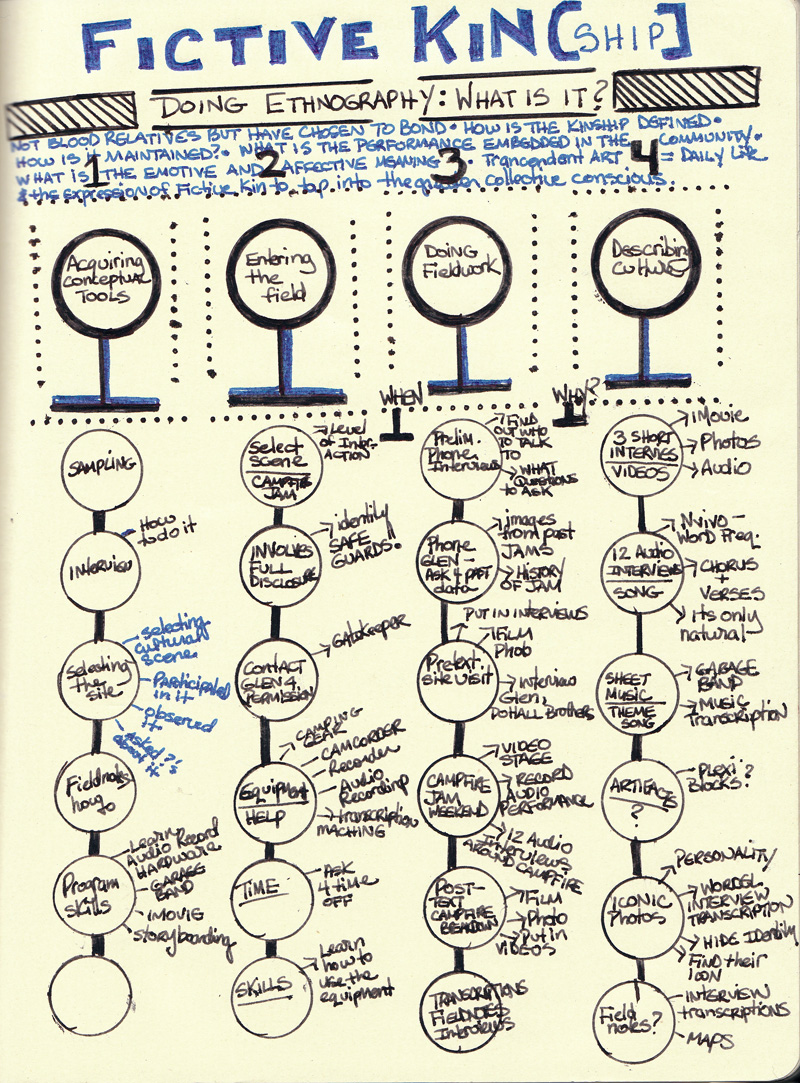 FICTIVE KIN[SHIP]
DOING ETHNOGRAPHY: WHAT IS IT?
NOT BLOOD RELATIVES BUT HAVE CHOSEN TO BOND • HOW IS THE KINSHIP DEFINED •
HOW IS it MAINTAINED? • WHAT IS THE PERFORMANCE EMBEDDED IN THE COMMUNITY •
WHAT IS THE EMOTIVE AND AFFECTIVE MEANING • TRANCENDENT ART = DAILY Life
& the expression of Fictive Kin to tap into the collective conscious.
1 2 3 4
Acquiring
conceptual
TOOLS
Entering
the
field
DOING
Fieldwork
Describing
culture
WHEN
WHY?
SAMPLING
Interview
How
to do it
Selecting
the
site
selecting
cultural
scene
Participated
in it
observed
it
Asked ?'s
about it
Fieldnotes
how to
Program
skills
Learn
Audio Record
HARDWARE
GARAGE
BAND
iMOVIE
storyboarding
Select
Scene
CAMPFIRE
JAM
Level
of Inter-
ACTION
INVOLVES
FULL
DISCLOSURE
identify
SAFE
GUARDS!!
CONTACT
GLEN 4
PERMISSION
GATEKEEPER
Equipment
HELP
CAMPING
GEAR
CAMCORDER
Recorder
Audio
Recording
transcription
MACHING
TIME
ASK
4 time
OFF
SKILLS
Learn
how to
use the
equipment
Prelim.
Phone
Interviews
FIND
OUT WHO
TO TALK
TO
WHAT
Questions
to ASK
Phone
GLEN -
ASK 4 PAST
data
images
from past
JAMS
HISTORY
OF JAM
Pretext
site visit
PUT IN INTERVIEWS
FILM
Photo
Interview
Glen,
DOHALL Brothers
CAMPFIRE
JAM
WEEKEND
VIDEO
STAGE
RECORD
AUDIO
PERFORMANCE
12 Audio
Interviews?
AROUND CAMPFIRE
POST-
TEXT
CAMPFIRE
BREAKDOWN
FILM
Photo
Put in
VIDEOS
TRANSCRIPTIONS
FIELDNOTES
Interviews
3 SHORT
INTERVIEWS
VIDEOS
iMovie
Photos
Audio
12 Audio
INTERVIEWS
SONG
Nvivo -
WORD Freq.
CHORUS
+
VERSES
its only
natural
SHEET
MUSIC
THEME
SONG
GABAGE
BAND
MUSIC
Transcription
ARTIFACTS
?
Plexi ?
Blocks?
ICONIC
Photos
PERSONALITY
WORDEL
INTERVIEW
TRANSCRIPTION
HIDE Identity
FIND their
ICON
Field
notes?
INTERVIEW
transcriptions
MAPS